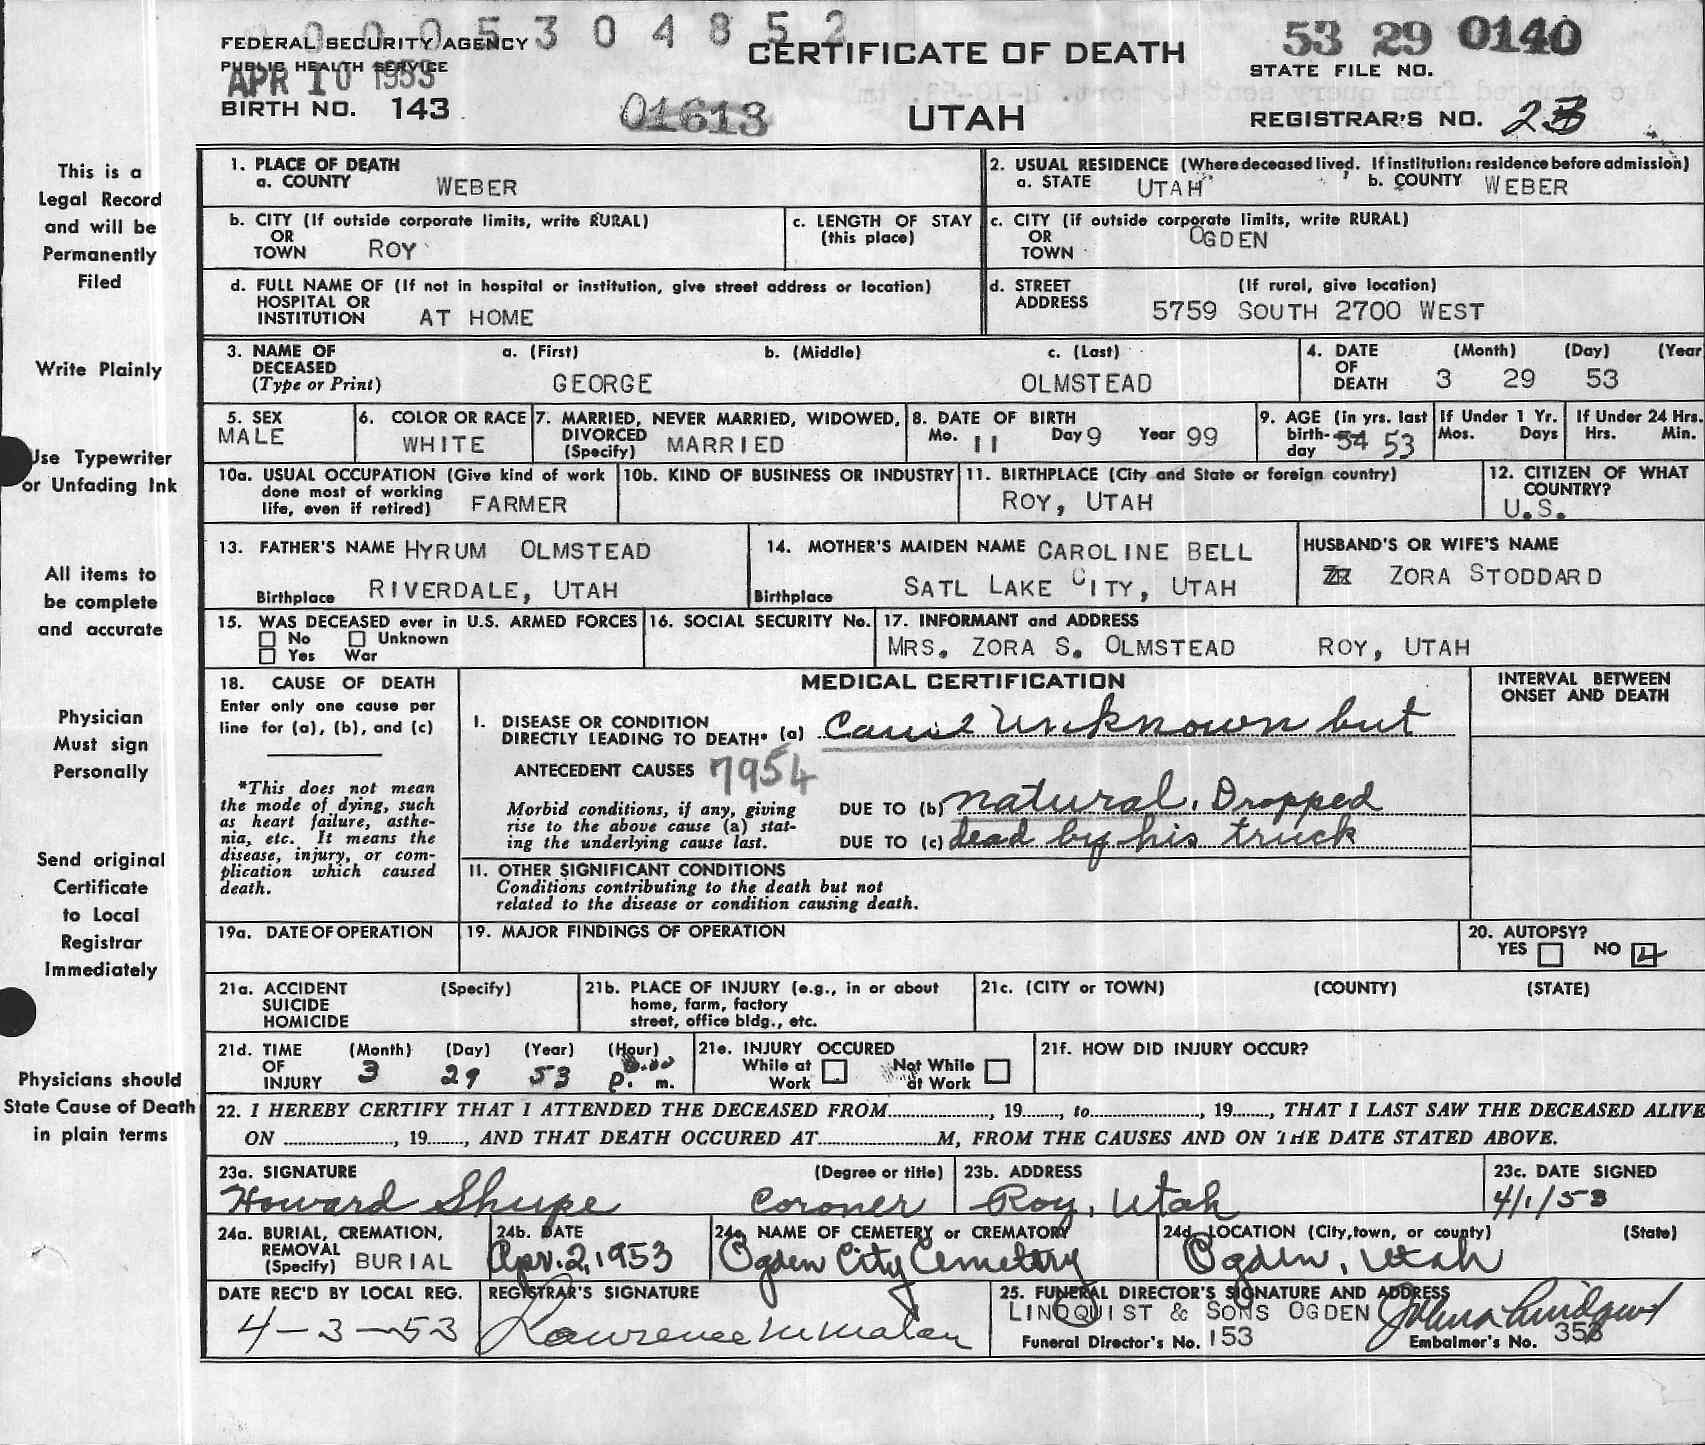 0 0 0 5 3 0 4 8 5 2
FEDERAL SECURITY AGENCY
PUBLIC HEALTH SERVICE
APR 10 1953
BIRTH NO. 143
01613
CERTIFICATE OF DEATH
UTAH
53 29 0140
STATE FILE NO.
REGISTRAR'S NO.
This is a
Legal Record
and will be
Permanently
Filed
Write Plainly
Use Typewriter
or Unfading Ink
All items to
be complete
and accurate
Physician
Must sign
Personally
Send original
Certificate
to Local
Registrar
Immediately
Physicians should
State Cause of Death
in plain terms
1. PLACE OF DEATH
a. COUNTY WEBER
2. USUAL RESIDENCE (Where deceased lived. If institution: residence before admission)
a. STATE UTAH b. COUNTY WEBER
b. CITY (If outside corporate limits, write RURAL)
OR
TOWN ROY
c. LENGTH OF STAY
(this place)
c. CITY (if outside corporate limits, write RURAL)
OR OGDEN
TOWN
d. FULL NAME OF (If not in hospital or institution, give street address or location)
HOSPITAL OR
INSTITUTION AT HOME
d. STREET (If rural, give location)
ADDRESS 5759 SOUTH 2700 WEST
3. NAME OF a. (First) b. (Middle) c. (Last)
DECEASED
(Type or Print) GEORGE OLMSTEAD
4. DATE (Month) (Day) (Year
OF
DEATH 3 29 53
5. SEX
MALE
6. COLOR OR RACE
WHITE
7. MARRIED, NEVER MARRIED, WIDOWED,
DIVORCED
(Specify) MARRIED
8. DATE OF BIRTH
Mo. 11 Day 9 Year 99
9. AGE (in yrs. last
birth-
day 54 53
If Under 1 Yr.
Mos. Days
If Under 24 Hrs.
Hrs. Min.
10a. USUAL OCCUPATION (Give kind of work
done most of working
life, even if retired) FARMER
10b. KIND OF BUSINESS OR INDUSTRY
11. BIRTHPLACE (City and State or foreign country)
ROY, UTAH
12. CITIZEN OF WHAT
COUNTRY?
U.S.
13. FATHER'S NAME HYRUM OLMSTEAD
Birthplace RIVERDALE, UTAH
14. MOTHER'S MAIDEN NAME CAROLINE BELL
Birthplace SATL LAKE CITY, UTAH
HUSBAND'S OR WIFE'S NAME
ZORA STODDARD
15. WAS DECEASED ever in U.S. ARMED FORCES
No Unknown
Yes War
16. SOCIAL SECURITY No.
17. INFORMANT and ADDRESS
MRS. ZORA S. OLMSTEAD ROY, UTAH
18. CAUSE OF DEATH
Enter only one cause per
line for (a), (b), and (c)
*This does not mean
the mode of dying, such
as heart failure, asthe-
nia, etc. It means the
disease, injury, or com-
plication which caused
death.
MEDICAL CERTIFICATION
I. DISEASE OR CONDITION
DIRECTLY LEADING TO DEATH* (a) Cause Unknown but
ANTECEDENT CAUSES 7954
Morbid conditions, if any, giving
rise to the above cause (a) stat-
ing the underlying cause last.
DUE TO (b) natural. Dropped
DUE TO (c) dead by his truck
II. OTHER SIGNIFICANT CONDITIONS
Conditions contributing to the death but not
related to the disease or condition causing death.
INTERVAL BETWEEN
ONSET AND DEATH
19a. DATE OF OPERATION
19. MAJOR FINDINGS OF OPERATION
20. AUTOPSY?
YES NO
21a. ACCIDENT (Specify)
SUICIDE
HOMICIDE
21b. PLACE OF INJURY (e.g., in or about
home, farm, factory
street, office bldg., etc.
21c. (CITY or TOWN) (COUNTY) (STATE)
21d. TIME (Month) (Day) (Year) (Hour)
OF
INJURY 3 29 53 P. m.
21e. INJURY OCCURED
While at Not While
Work at Work
21f. HOW DID INJURY OCCUR?
22. I HEREBY CERTIFY THAT I ATTENDED THE DECEASED FROM................, 19......., to..................., 19......., THAT I LAST SAW THE DECEASED ALIVE
ON ..................., 19......., AND THAT DEATH OCCURED AT....................M, FROM THE CAUSES AND ON THE DATE STATED ABOVE.
23a. SIGNATURE (Degree or title)
Howard Shupe Coroner
23b. ADDRESS
Roy, Utah
23c. DATE SIGNED
4/1/53
24a. BURIAL, CREMATION,
REMOVAL
(Specify) BURIAL
24b. DATE
Apr. 2, 1953
24c. NAME OF CEMETERY or CREMATORY
Ogden City Cemetery
24d. LOCATION (City, town, or county) (State)
Ogden, Utah
DATE REC'D BY LOCAL REG.
4-3-53
REGISTRAR'S SIGNATURE
Lawrence M Malan
25. FUNERAL DIRECTOR'S SIGNATURE AND ADDRESS
LINDQUIST & SONS OGDEN
Funeral Director's No. 153 Embalmer's No.